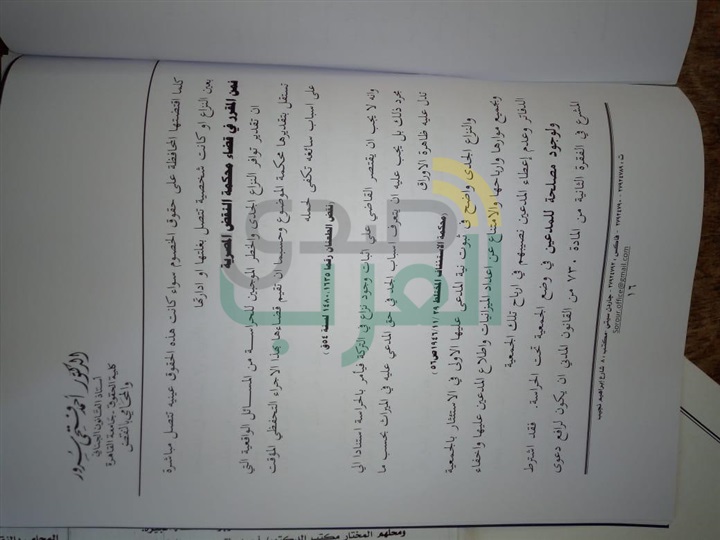 الدكتور / أحمد فتحي سرور
أستاذ القانون الجنائي
كلية الحقوق - جامعة القاهرة
والمحامي بالنقض
كلما اقتضتها المحافظة على حقوق الخصوم سواء كانت هذه الحقوق عينيه تتصل مباشرة
بعين النزاع او كانت شخصية تتصل بغلتها او ادارتها
فمن المقرر في قضاء محكمة النقض المصريه
ان تقدير توافر النزاع الجدى والخطر الموجبين للحراسة من المسائل الواقعية التي
تستقل بتقديرها محكمة الموضوع وحسبها ان تقيم قضاءها بهذا الاجراء التحفظي المؤقت
على اسباب سائغه تكفى لحمله
(نقض الطعنان رقما ١٦٣٥، ١٤٨٠ لسنة ٥٤ق)
وانه لا يجب ان يقتصر القاضي على اثبات وجود نزاع في التركة فيأمر بالحراسة استنادا الي
مجرد ذلك بل يجب عليه ان يتعرف اسباب الجد في حق المدعي عليه في الميراث بحسب ما
تدل عليه ظاهرة الاوراق
(محكمة الاستئناف المختلط ١٩٤٦/١١/٢٩ ص٥٦)
والنزاع الجدى واضح في ثبوت نية المدعى عليها الاولى في الاستئثار بالجمعية
وبجميع موارها وارباحها والامتناع عن اعداد الميزانيات واطلاع المدعين عليها واخفاء
الدفاتر وعدم إعطاء المدعين نصيبهم في ارباح تلك الجمعية
ولوجود مصلحة للمدعين في وضع الجمعية تحت الحراسة. فقد اشترط
المشرع في الفقرة الثانية من المادة ٧٣٠ من القانون المدني ان يكون لرافع دعوى
١٦
Sorour.office@gmail.com
صدى
العرب
ومحلهم المختار مكتب الدكتور